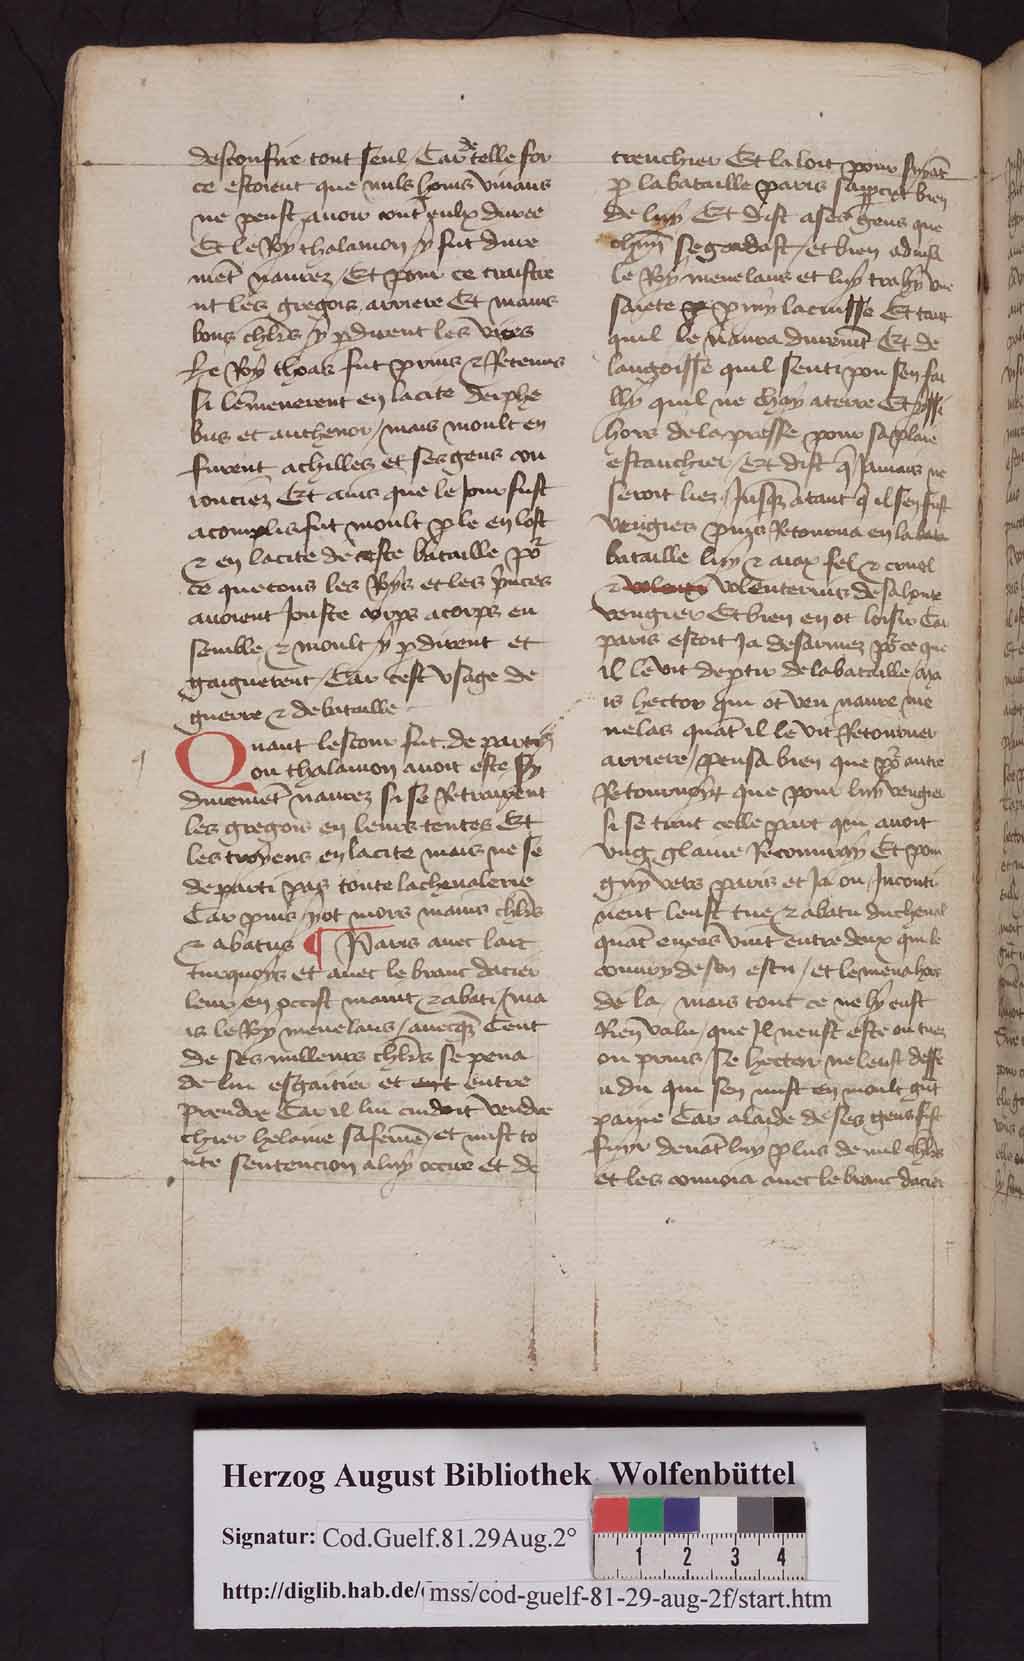 desconfire tout seul / Car de telle for
ce estoient que nuls homs viuans
ne peust auoir cont eulx duree
Et le Roy thalamon y fut dure
met naurez / Et pour ce traistre
nt les gregois arriere Et mains
bons chlrs y pdirent les vies
Le Roy thoas fut prins & Retenus
si lemenerent en la cite deiphe
bus et anthenor / mais moult en
furent achilles et ses gens cou
rouciez Et ains que le Jour fust
acomplis fut moult p le en lost
& en la cite de ceste bataille po
ce que tous les Roys et les princes
auoient Jouste corps a corps en
semble & moult y pdirent et
gaignerent / Car cest vsage de
guerre & de bataille
Quant lestour fut departis
ou thalamon auoit este sy
durement naurez si se Retrayent
les gregois en leurs tentes Et
les troyens en la cite mais ne se
departi pas toute la cheualerie
Car puis y ot mors mains chlrs
& abatus ¶ Paris auec larc
turquoys et auec le branc dacier
leur en occist maint & abati / ma
is le Roy menelaus / auecqz Cent
de ses millenrs chlrs se pena
de lui esgaitier et ent entre
prendre Car il lui cuidoit vendre
chier helaine sa feme / et mist to
ute sentencion a luy occire et de
trenchier Et la loit pour syuat
p la bataille paris sappercut bien
de luy Et dist a ses gens que
chun se gardast / et bien aduisa
le Roy menelaus et luy trahy vne
saiete p pmy la cuisse Et tant
quil le naura durement Et de
langoisse quil senti pou sen fai
lly quil ne chay a terre Et yssi
hors de la presse pour sa plaie
estanchier / Et dist q Jamais ne
seroit liez Jusqz atant q il sen fust
vengies puis Retourna en la bata
bataille luy & aiax fel & cruel
& volenterius de sa honte
vengier Et bien en ot loisir Car
paris estoit Ja desarmez po ce que
il le vit deptir de la bataille / Ma
is hector qui ot veu naure me
nelas quat il le vit Retourner
arriere / pensa bien que po autre
Retournoyt que pour luy vengier
si se trait celle part qui auoit
vng glaiue Recouuray Et poin
gny vers paris et Ja ou Inconti
nent leust tue & abatu du cheual
quat eneas vint entre deux qui le
couury de son escu / et le mena hors
de la / mais tout ce ne ly eust
Rien valu / que Il neust este ou tuez
ou prins / Se hector ne leust deffe
ndu qui sen mist en moult gnt
paine Car a laide de ses gens fist
fuyr deuat luy plus de mil chlrs
et les conuoia auec le branc dacier
Herzog August Bibliothek Wolfenbüttel
Signatur: Cod.Guelf.81.29Aug.2°
1 2 3 4
http://diglib.hab.de/ mss/cod-guelf-81-29-aug-2f/start.htm